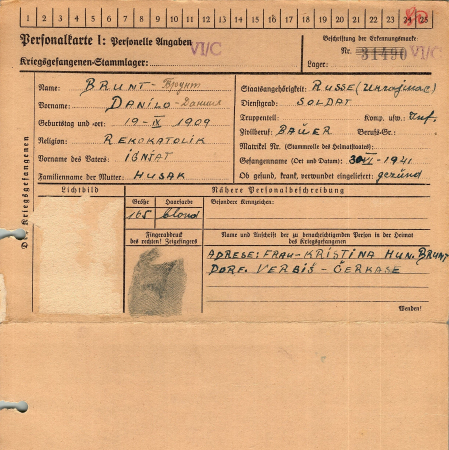 1 2 3 4 5 6 7 8 9 10 11 12 13 14 15 16 17 18 19 20 21 22 23 24 25
Personalkarte I: Personelle Angaben
VI/C
Kriegsgefangenen-Stammlager:
Beschriftung der Erkennungsmarke
Nr. 31490 VI/C
Lager:
Name: BRUNT-Брунт
Vorname: DANILO-Данил
Geburtstag und -ort: 19-IX 1909
Religion: REKOKATOLIK
Vorname des Vaters: IGNJAT
Familienname der Mutter: HUSAK
Staatsangehörigkeit: RUSSE
Dienstgrad: SOLDAT
Truppenteil: Komp. usw.: Inf.
Zivilberuf: BAUER Berufs-Gr.:
Matrikel Nr. (Stammrolle des Heimatstaates):
Gefangennahme (Ort und Datum): 30-VI-1941
Ob gesund, krank, verwundet eingeliefert: gezünd
Lichtbild
Nähere Personalbeschreibung
Größe Haarfarbe Besondere Kennzeichen:
165 blond
Fingerabdruck
des rechten! Zeigefingers
Name und Anschrift der zu benachrichtigenden Person in der Heimat
des Kriegsgefangenen
ADRESE: FRAU-KRISTINA HUN. BRUNT
DORF. VERBIŠ-ČERKASE
Wenden!
Des Kriegsgefangenen